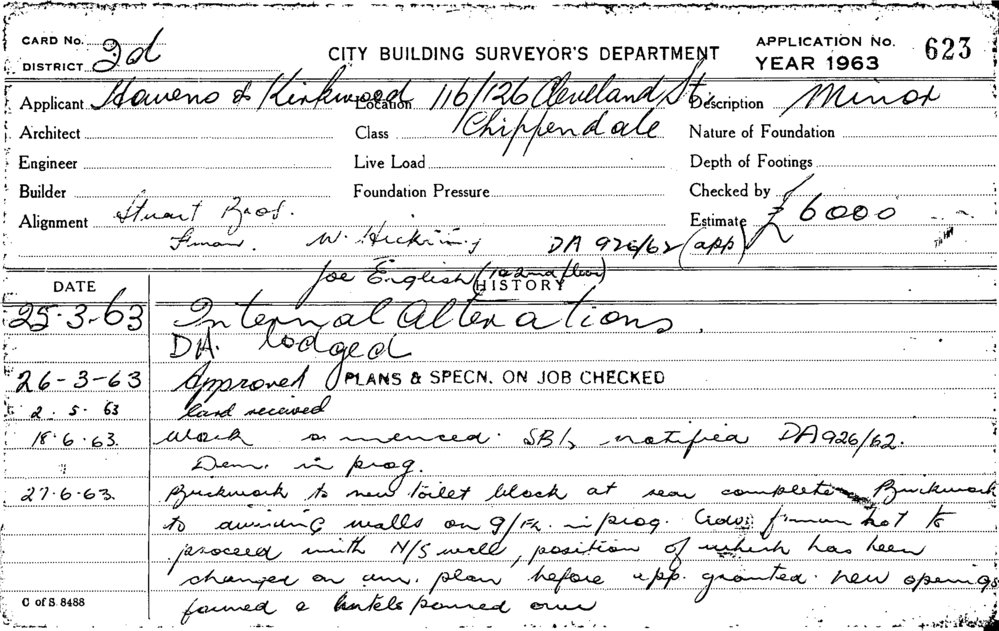 CARD No. 2d
DISTRICT
CITY BUILDING SURVEYOR'S DEPARTMENT
APPLICATION No. 623
YEAR 1963
Applicant Hawens & Kirkwood Location 116/126 Cleveland St. Description Minor
Architect Class Chippendale Nature of Foundation
Engineer Live Load Depth of Footings
Builder Foundation Pressure Checked by
Alignment Stuart Bros. Estimate £6000
W. Hickin DA 926/62 (app)
Joe English (1st & 2nd floor)
DATE HISTORY
25-3-63 Internal Alterations.
DA. lodged
26-3-63 Approved PLANS & SPECN. ON JOB CHECKED
2. 5. 63 Card received
18.6.63. Work commenced. SBI, notified DA 926/62.
Dem. in prog.
27.6.63. Brickwork to new toilet block at rear complete Brickwork
to dividing walls on g/flr. in prog. f'man not to
proceed with N/S wall, position of which has been
changed on am. plan before app. granted. New openings
formed & lintels poured over
C of S. 8488